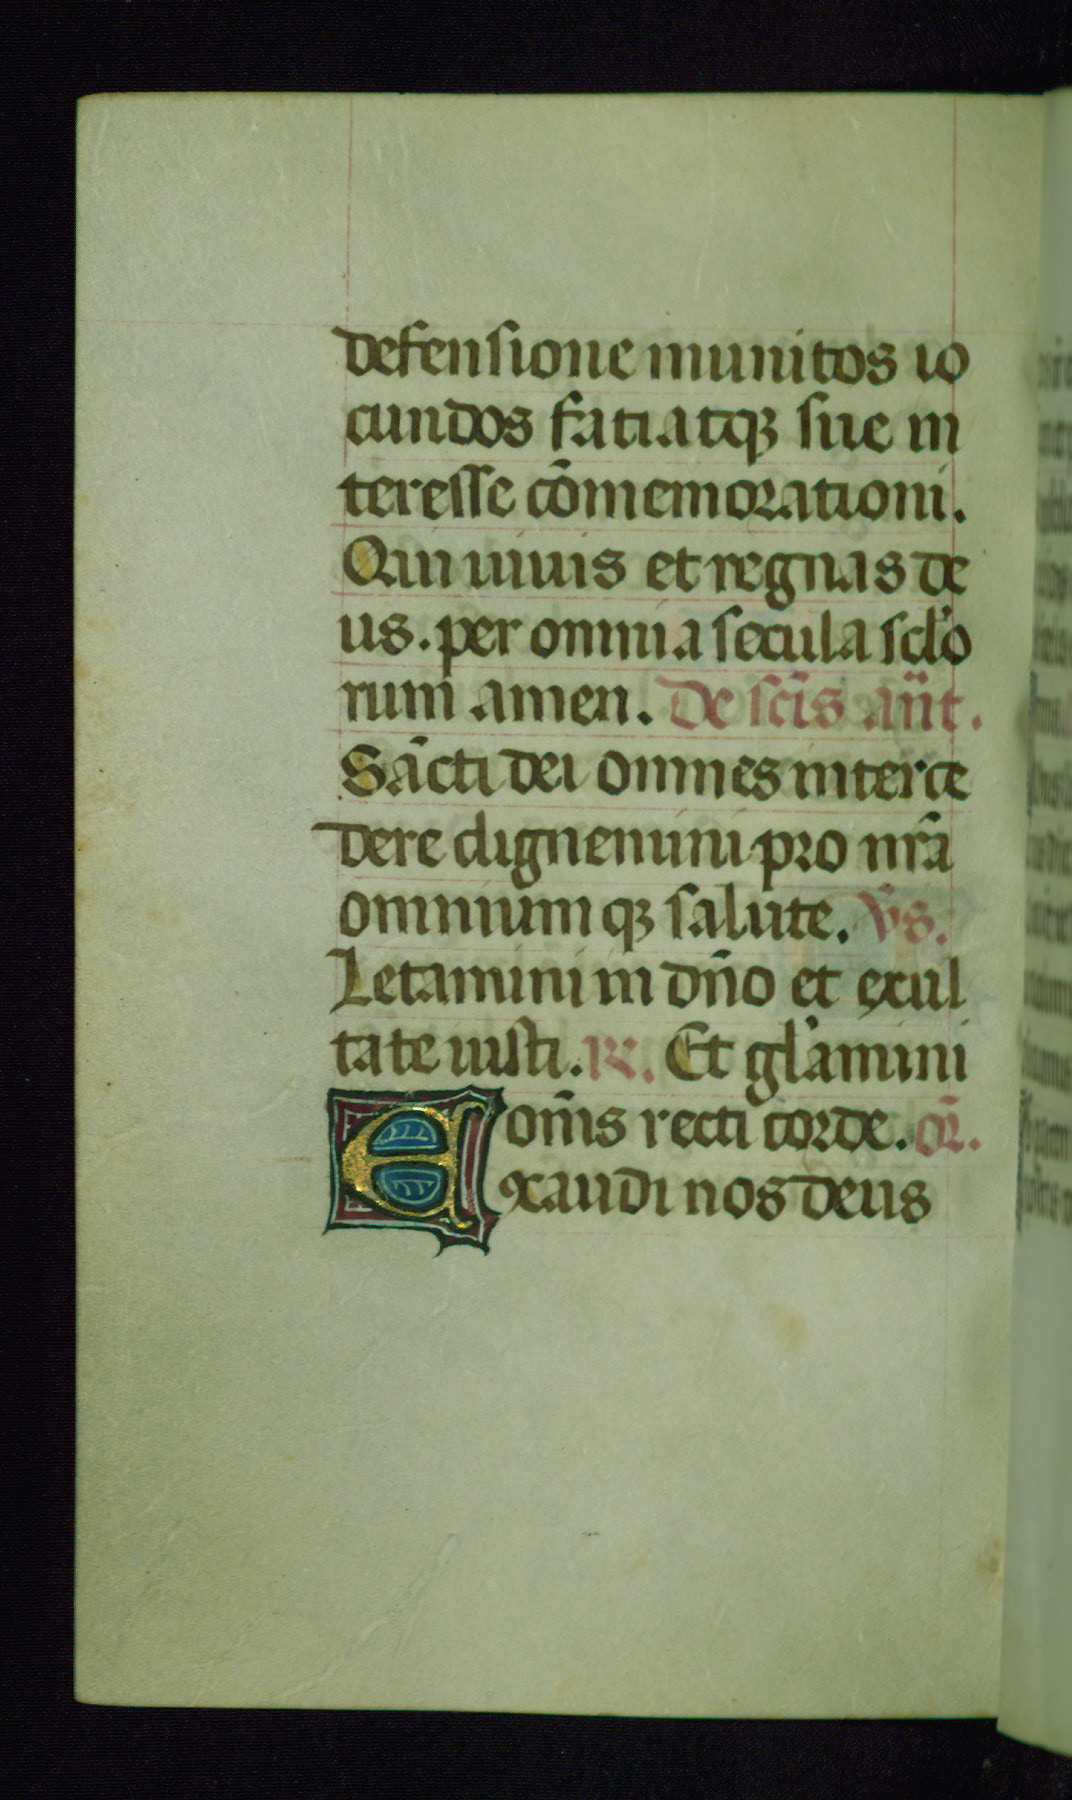 defensione munitos io
cundos fatiatqꝫ sue in
teresse cōmemorationi.
Qui uiuis et regnas de
us. per omnia secula sclo᷑
rum amen. De scīs an̄t.
Sācti dei omnes interce
dere dignemini pro nrā
omnium qꝫ salute. v̄s.
Letamini in dn̄o et exul
tate iusti. R̄. Et gl'amini
om̄s recti corde. or̄.
Exaudi nos deus